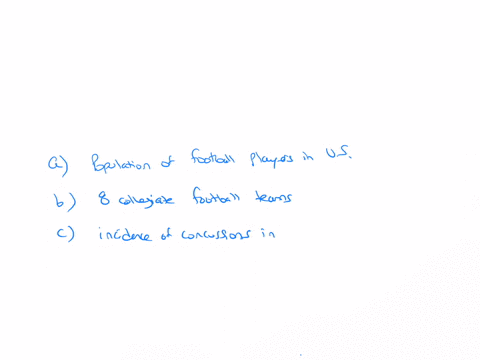 a) Population of football players in U.S.
b) 8 collegiate football teams
c) incidence of concussions in